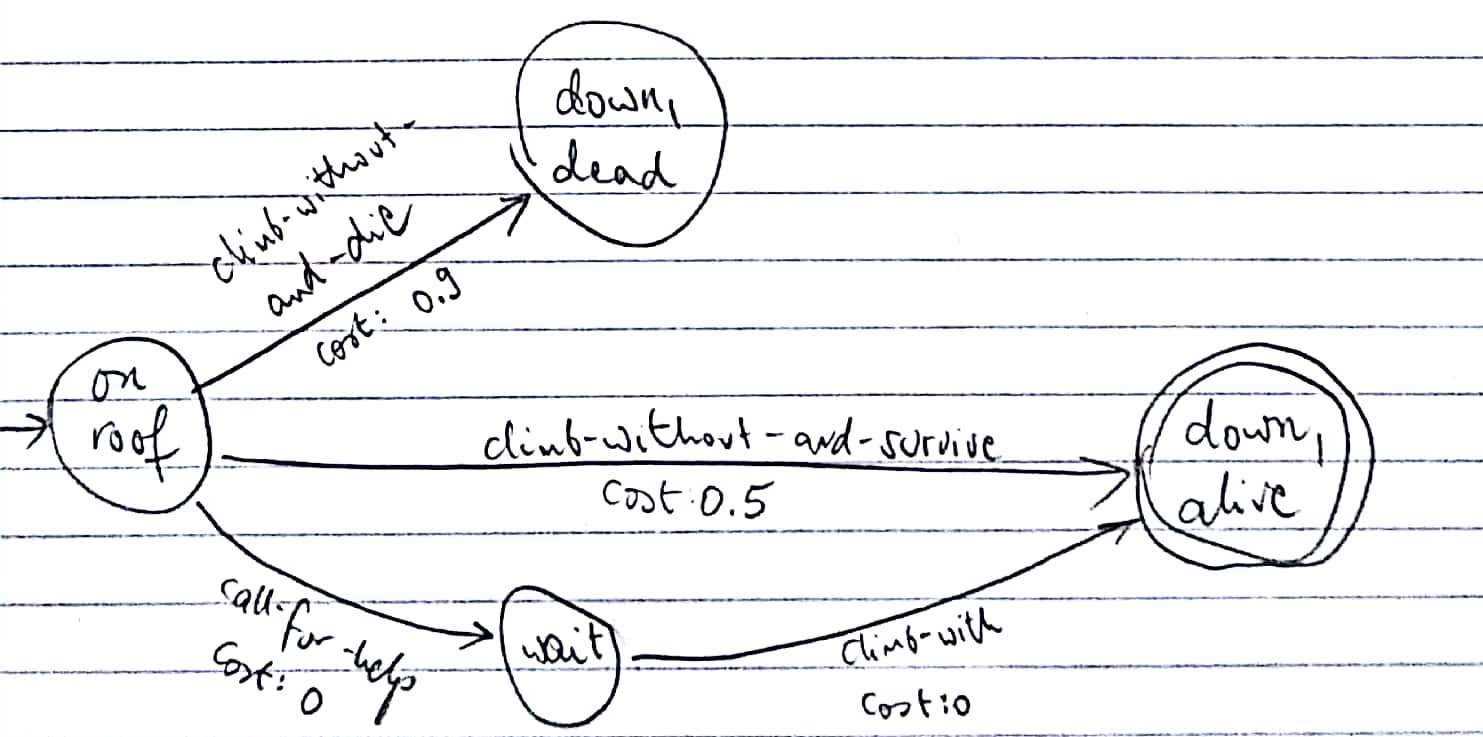 down,
dead
climb-without-
and-die
cost: 0.9
on
roof
climb-without-and-survive
cost: 0.5
down,
alive
call-
for-help
cost:
0
wait
climb-with
cost: 0